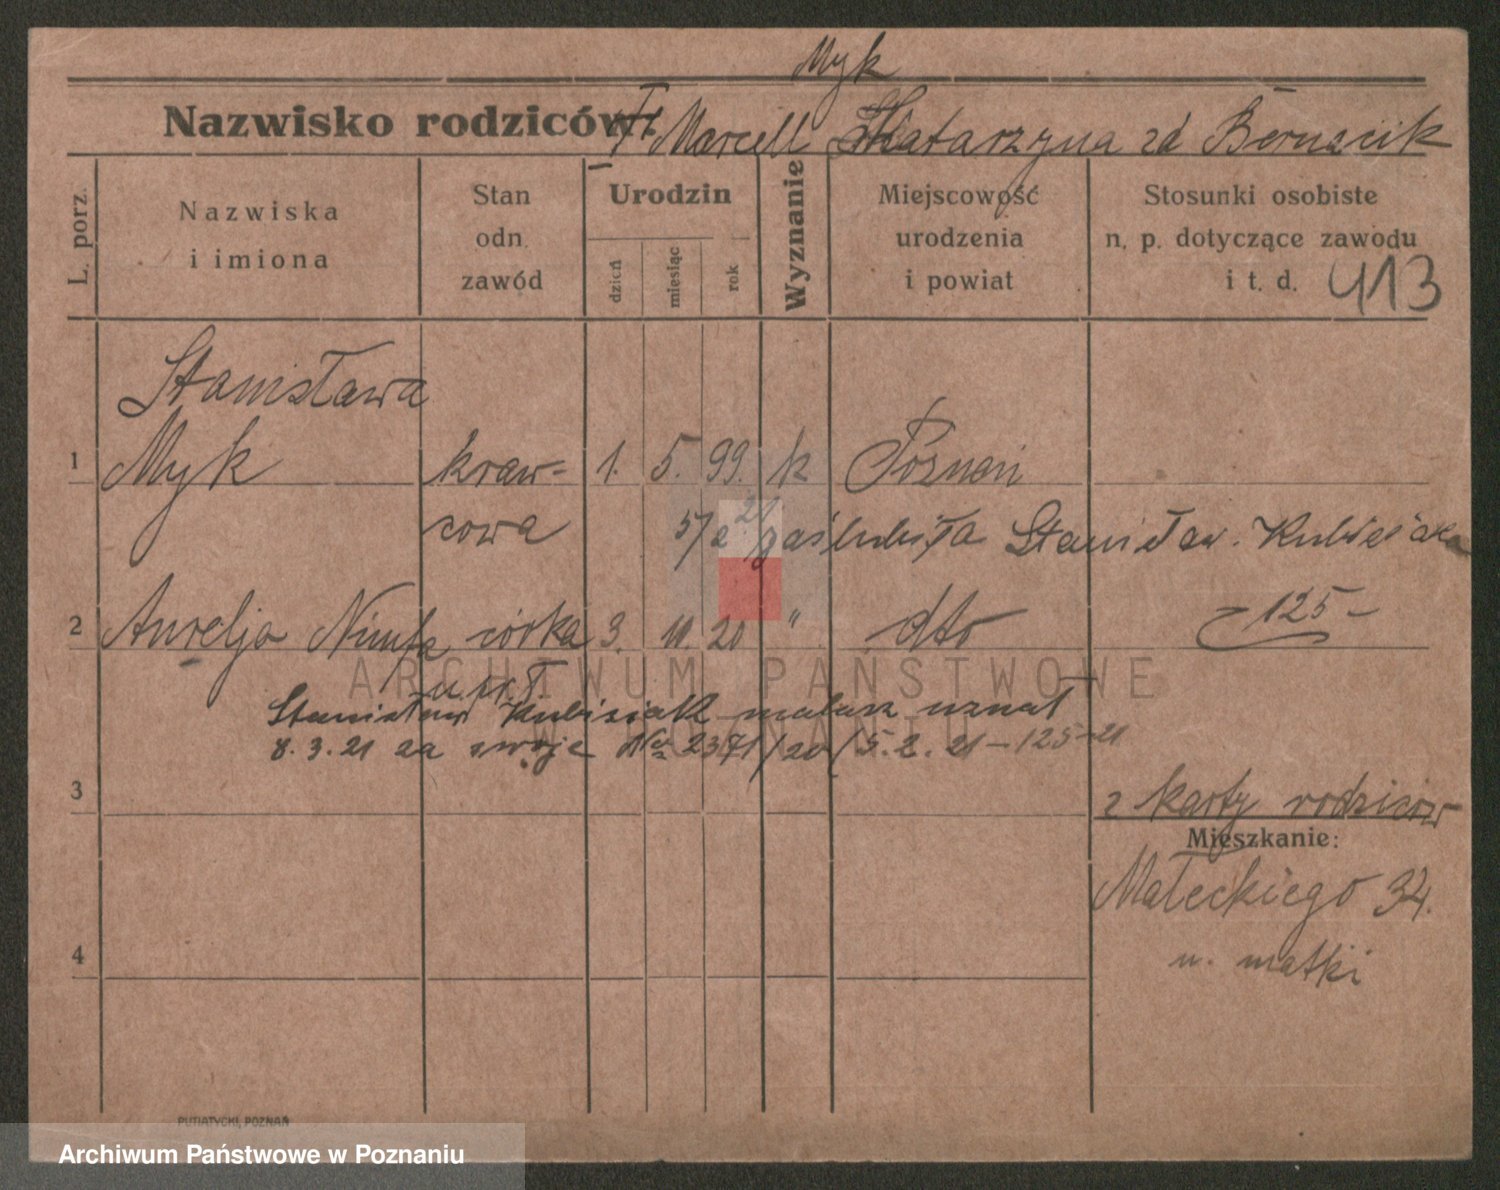 Myk
Nazwisko rodziców: Marcell Katarzyna zd
L. porz.
Nazwiska
i imiona
Stan
odn.
zawód
Urodzin
dzień
miesiąc
rok
Wyznanie
Miejscowość
urodzenia
i powiat
Stosunki osobiste
n. p. dotyczące zawodu
i t. d. 413
Stanisława
1 Myk kraw- 1. 5. 99. k Poznań
cowa 5/2 21 zaślubiła Stanisław. Kubisiaka
2 Aurelja Nimfa córka 3. 11. 20 " dto - 125 -
Stanisław Kubisiak malarz uznał
8. 3. 21 za swoje Nr 2371/20 (5. 2. 21 - 125-21
3
z karty rodziców
Mieszkanie:
Małeckiego 34.
u. matki
4
PUTIATYCKI, POZNAŃ
ARCHIWUM PAŃSTWOWE
W POZNANIU
Archiwum Państwowe w Poznaniu